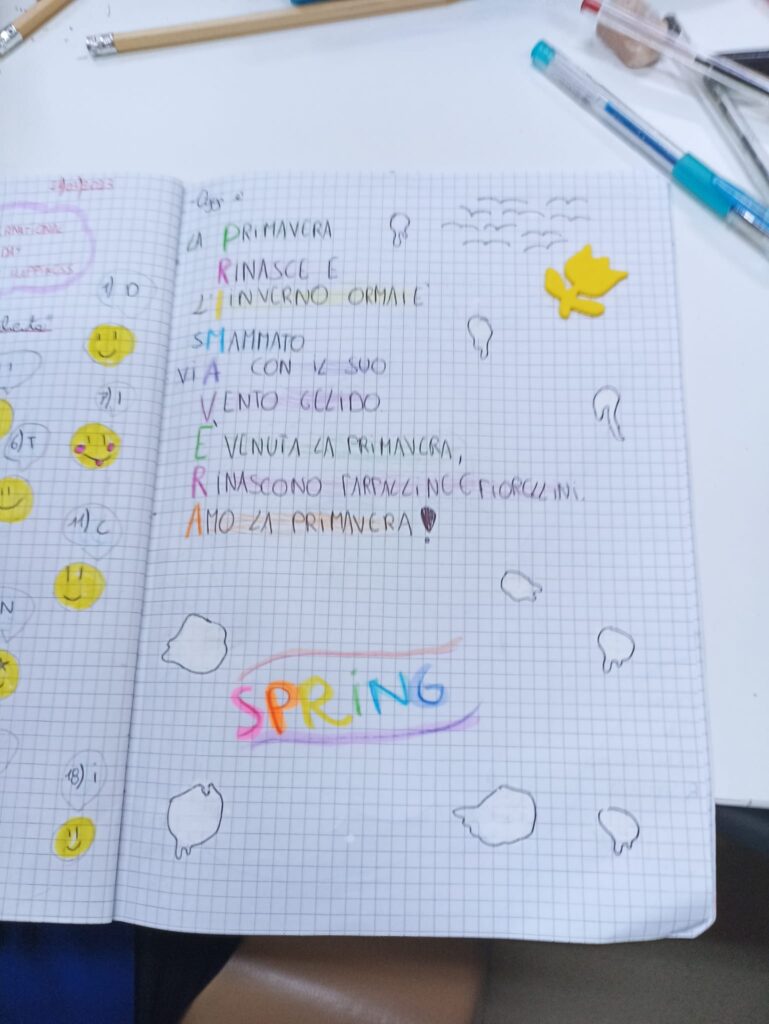 23/03/2023
RNATIONAL
DAY
HAPPINESS
1) D
7) I
6) T
11) C
N
18) i
Oggi è
LA PRIMAVERA
RINASCE E
L'INVERNO ORMAI È
SMAMMATO
Vi A CON IL SUO
VENTO GELIDO
È VENUTA LA PRIMAVERA,
RINASCONO FARFALLINE E FIORELLINI.
AMO LA PRIMAVERA!
SPRiNG